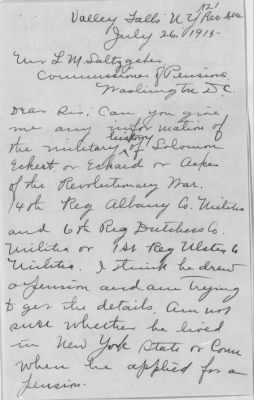 Valley Falls N Y
July 26. 1913-
Mr L M Saltzgaber
Commissioner of Pensions,
Washington D C.
Dear Sir; Can you give
me any information of
history
the military of Solomon
Eckert or Eckard or Acker
of the Revolutionary War.
14th Reg Albany Co. Militia
and 6th Reg Dutchess Co.
Militia or 1st Reg Ulster Co
Militia. I think he drew
a pension and am trying
to get the details. Am not
sure whether he lived
in New York State or Conn
when he applied for a
pension.